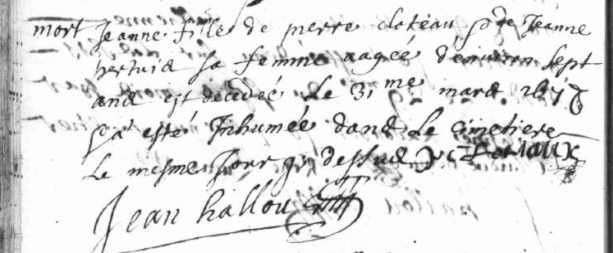 mort Jeanne fille de pierre clateau & de Jeanne
sa femme aagée d'environ sept
ans est décédée le 31 me mars 167
& a esté Inhumée dans le Cimetiere
le mesme Jour cy dessus
Jean hallou